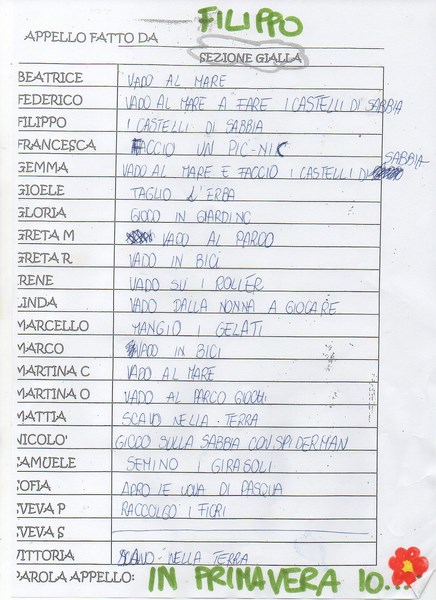 APPELLO FATTO DA FILIPPO
SEZIONE GIALLA
BEATRICE VADO AL MARE
FEDERICO VADO AL MARE A FARE I CASTELLI DI SABBIA
FILIPPO I CASTELLI DI SABBIA
FRANCESCA FACCIO UN PIC-NIC
GEMMA VADO AL MARE E FACCIO I CASTELLI DI SABBIA
GIOELE TAGLIO L'ERBA
GLORIA GIOCO IN GIARDINO
GRETA M VADO AL PARCO
GRETA R VADO IN BICI
IRENE VADO SU I ROLLER
LINDA VADO DALLA NONNA A GIOCARE
MARCELLO MANGIO I GELATI
MARCO VADO IN BICI
MARTINA C VADO AL MARE
MARTINA O VADO AL PARCO GIOCHI
MATTIA SCAVO NELLA TERRA
NICOLO' GIOCO SULLA SABBIA CON SPIDERMAN
SAMUELE SEMINO I GIRASOLI
SOFIA APRO LE UOVA DI PASQUA
EVEVA P RACCOLGO I FIORI
EVEVA S
VITTORIA SCAVO NELLA TERRA
PAROLA APPELLO: IN PRIMAVERA IO...